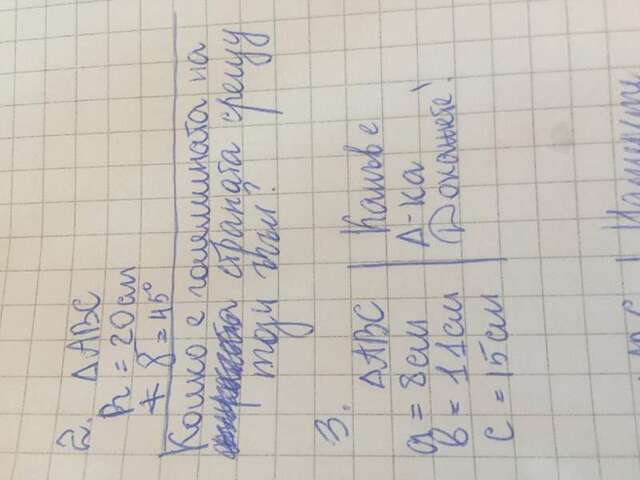 2. ΔABC
R = 20 см
∢ γ = 45°
Колко е големината на
страната срещу
този ъгъл?
3.
ΔABC
a = 8 см
b = 11 см
c = 15 см
Какъв е
Δ-ка
Докажете!